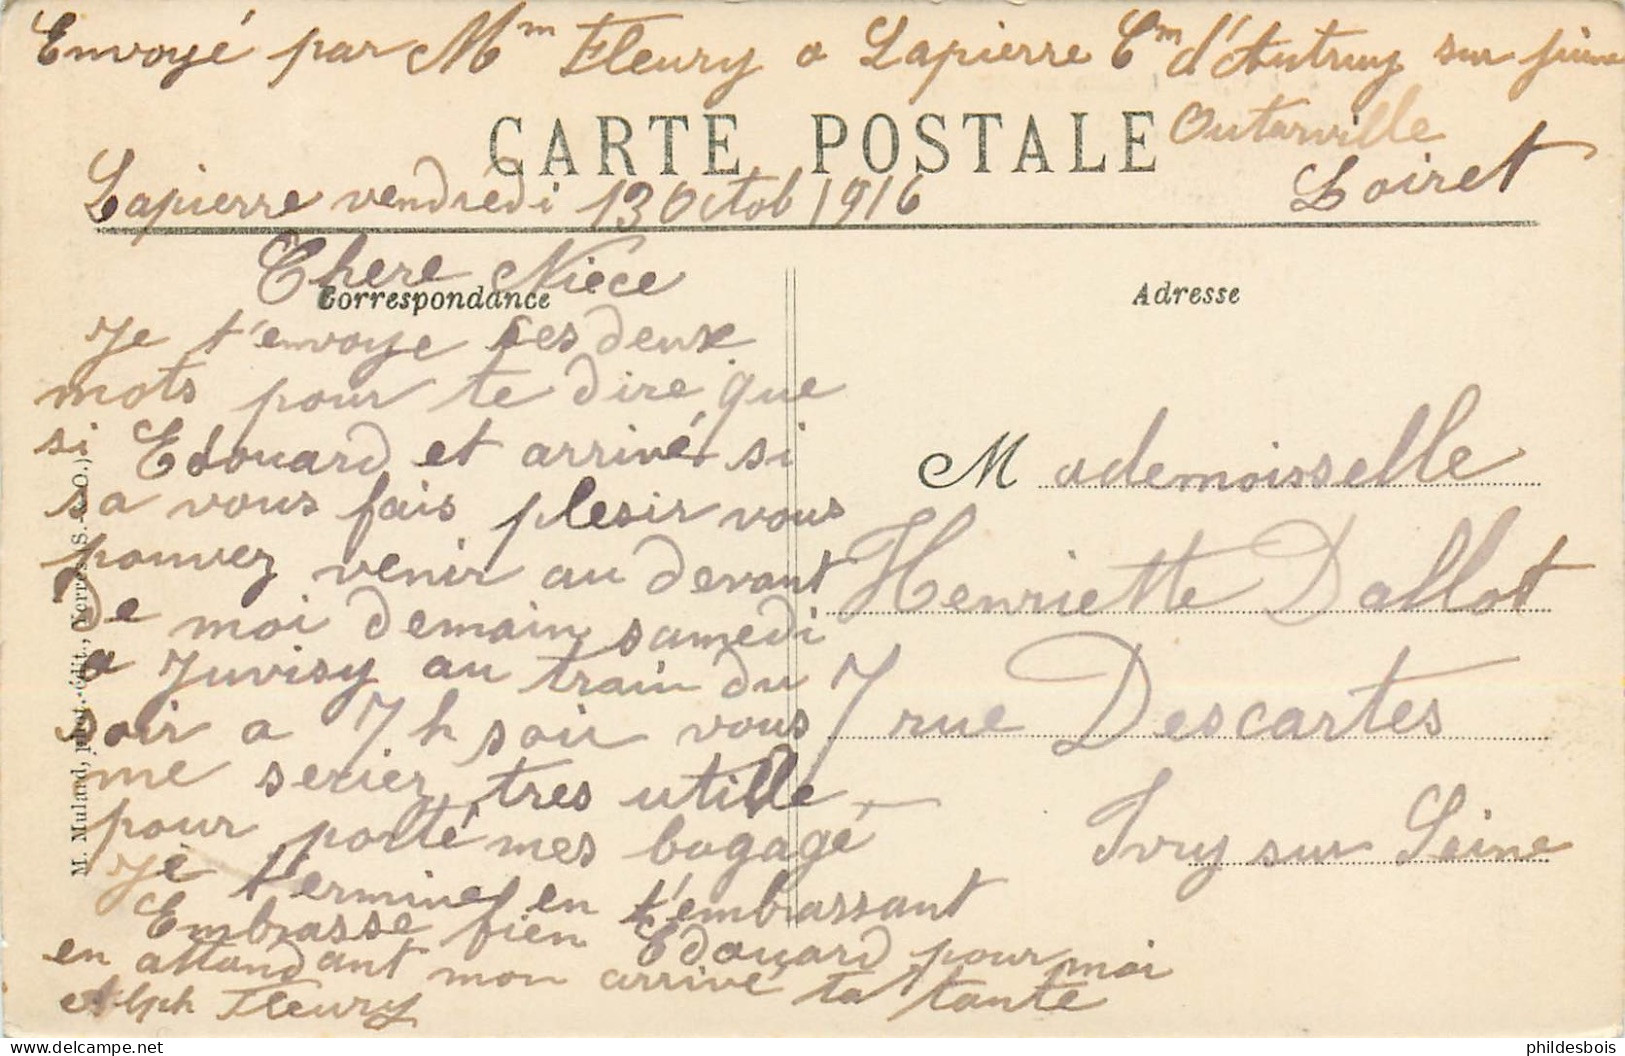 Envoyé par Mm Fleury a Lapierre Cm d'Autruy sur juine
Outarville
Loiret
CARTE POSTALE
Lapierre vendredi 13 Octob 1916
Chere Niece
Correspondance
Je t'envoye ses deux
mots pour te dire que
si Edouard et arrivé si
sa vous fais plesir vous
pouvez venir au devant
de moi demain samedi
a Juvisy au train du
soir a 7 h soir vous
me serier tres utille
pour porté mes bagagé
Je termine en t'embrassant
Embrasse bien Edouard pour moi
en attandant mon arrivé ta tante
Alph Fleury
Adresse
Mademoisselle
Henriette Dallot
7 rue Descartes
Ivry sur Seine
M. Mulard, phot.-édit., (S.-O.)
phildesbois